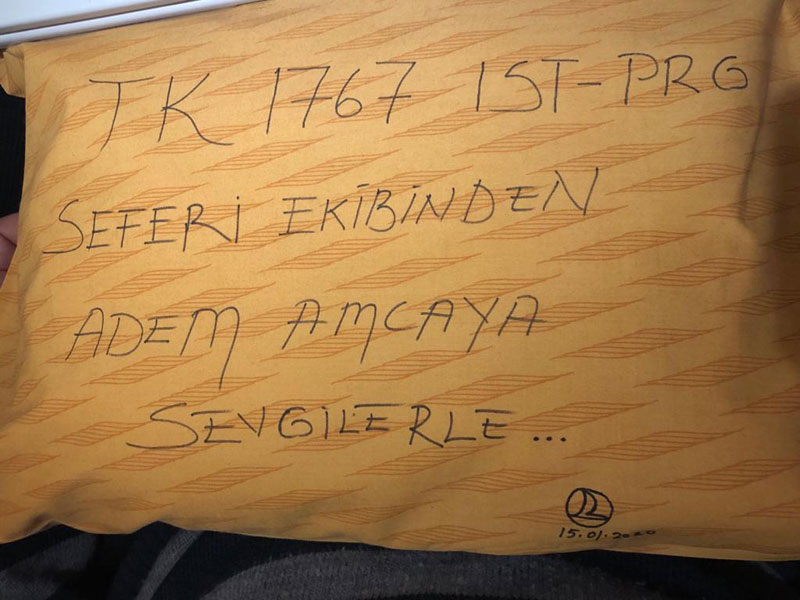 TK 1767 IST-PRG
SEFERİ EKİBİNDEN
ADEM AMCAYA
SEVGİLERLE...
15.01.2020